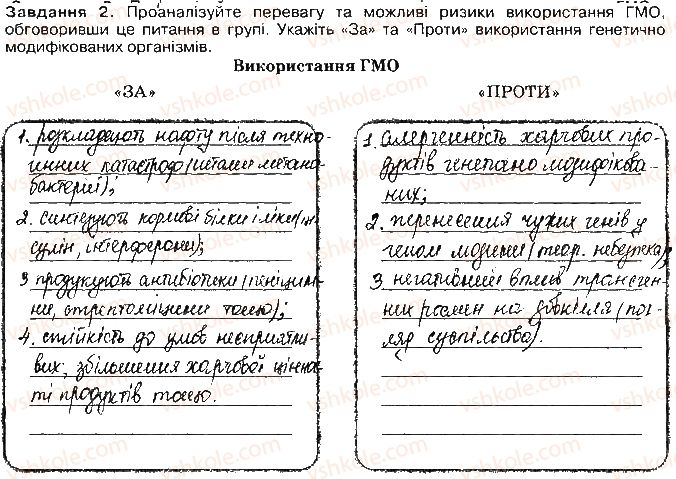 Завдання 2. Проаналізуйте перевагу та можливі ризики використання ГМО,
обговоривши це питання в групі. Укажіть «За» та «Проти» використання генетично
модифікованих організмів.
Використання ГМО
«ЗА»
1. розкладають нафту після техно-
генних катастроф (штами метано-
бактерій);
2. синтезують кормові білки і ліки (ін-
сулін, інтерферони);
3 продукують антибіотики (пеніцилі-
ни, стрептоміцини тощо);
4. стійкість до умов несприятли-
вих, збільшення харчової цінно-
ті продуктів тощо.
«ПРОТИ»
1. алергенність харчових про-
дуктів генетично модифікова-
них;
2. перенесення чужих генів у
геном людини (теор. небезпека)
3. негативний вплив трансген-
них рослин на довкілля (пог-
ляд суспільства).
vshkole.com